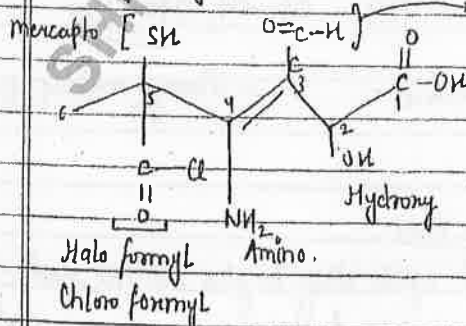 mercapto [ SH
O=C-H }
C 3
O
C -OH
C 5 4 2
C-Cl
OH
O
NH2
Hydroxy
Halo formyl Amino.
Chloro formyl
SH